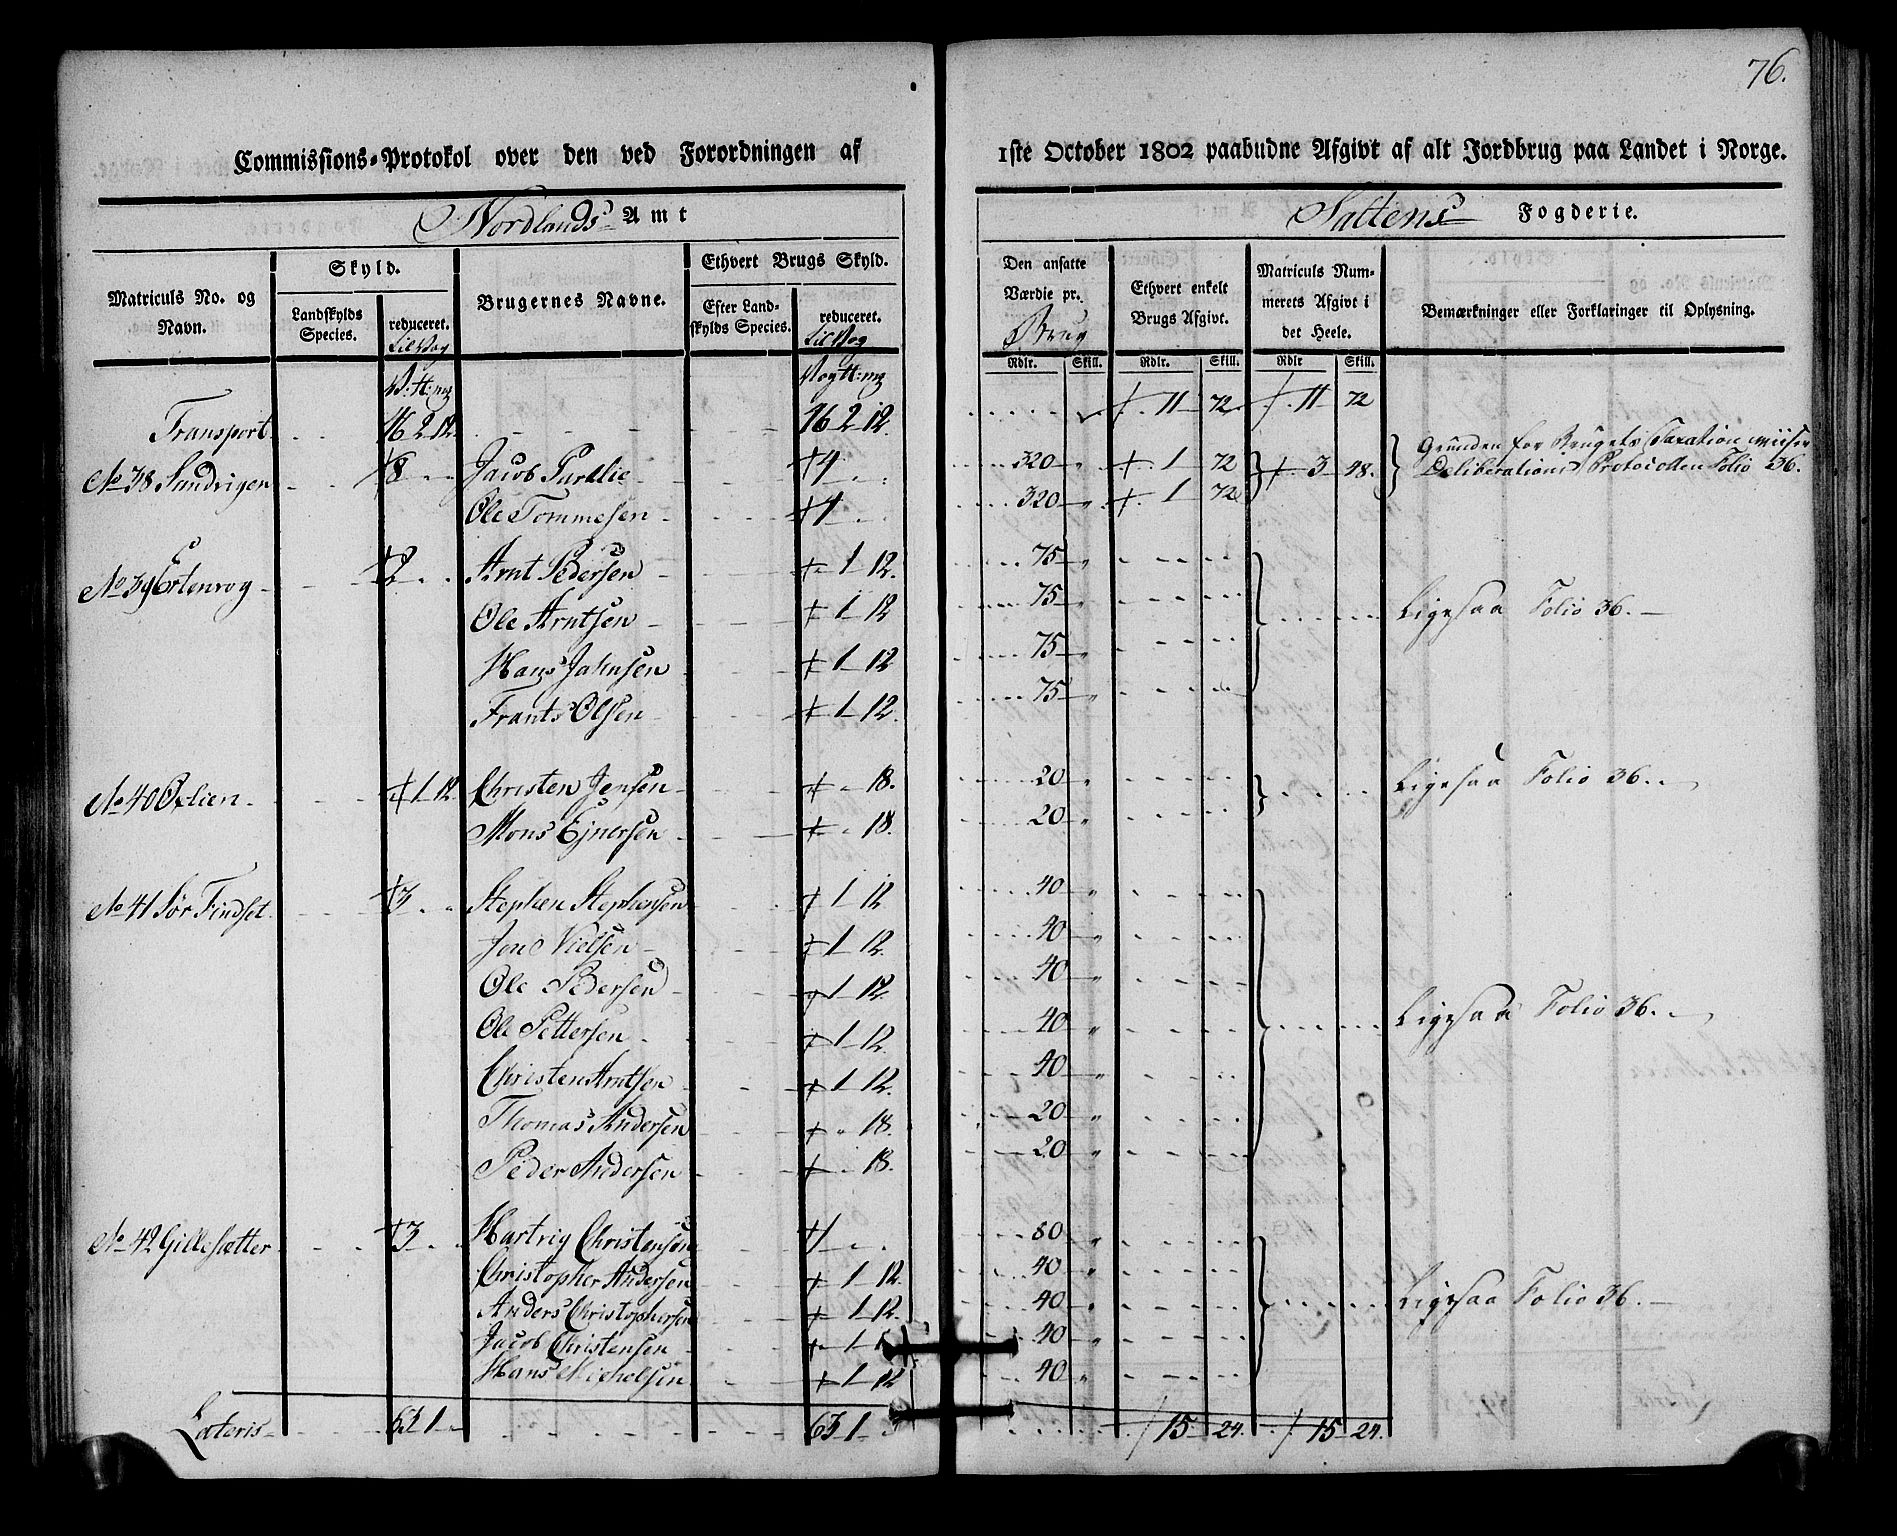 76.
Commissions-Protokol over den ved Forordningen af 1ste October 1802 paabudne Afgivt af alt Jordbrug paa Landet i Norge.
Nordlands Amt Saltens Fogderie.
Matriculs No. og Navn. Skyld. Landskylds Species. reduceret. Brugernes Navne. Ethvert Brugs Skyld. Efter Landskylds Species. reduceret. Den ansatte Værdie pr. Brug Rdlr. Skill. Ethvert enkelt Brugs Afgivt. Rdlr. Skill. Matriculs Nummerets Afgivt i det Heele. Rdlr Skill. Bemærkninger eller Forklaringer til Oplysning.
Transport 2 12. 2 12. 11 72 11 72
No 38 8 Jacob 4 320 1 72 3 48. Grunden for Brugets Taxation viiser Deliberations Protocollen Folio 36.
Ole Tommesen 320 1 72
No 39 2 Arnt Pedersen 1 12. 75
Ole Arntsen 1 12 75 Ligesaa Folio 36.
Hans Jahnsen 1 12 75
Frants Olsen 1 12. 75
No 40 Oxlien 1 12 Christen Jensen 18. 20 Ligesaa Folio 36.
Mons Ejnersen 18. 20
No 41 Sør Findset 3 Stephen Stephensen 1 12 40
Jon Nielsen 1 12. 40
Ole Pedersen 1 12. 40
Ole Pettersen 1 12. 40 Ligesaa Folio 36.
Christen Arntsen 1 12. 40
Thomas Andersen 18. 20
Peder Andersen 18. 20
No 42 Gillesætter 3 Hartvig Christensen 1 80
Christopher Andersen 1 12. 40
Anders Christophersen 1 12. 40 Ligesaa Folio 36.
Jacob Christensen 1 40
Hans Michelsen 1 12 40
Lateris 63 1 63 1 15 24. 15 24.